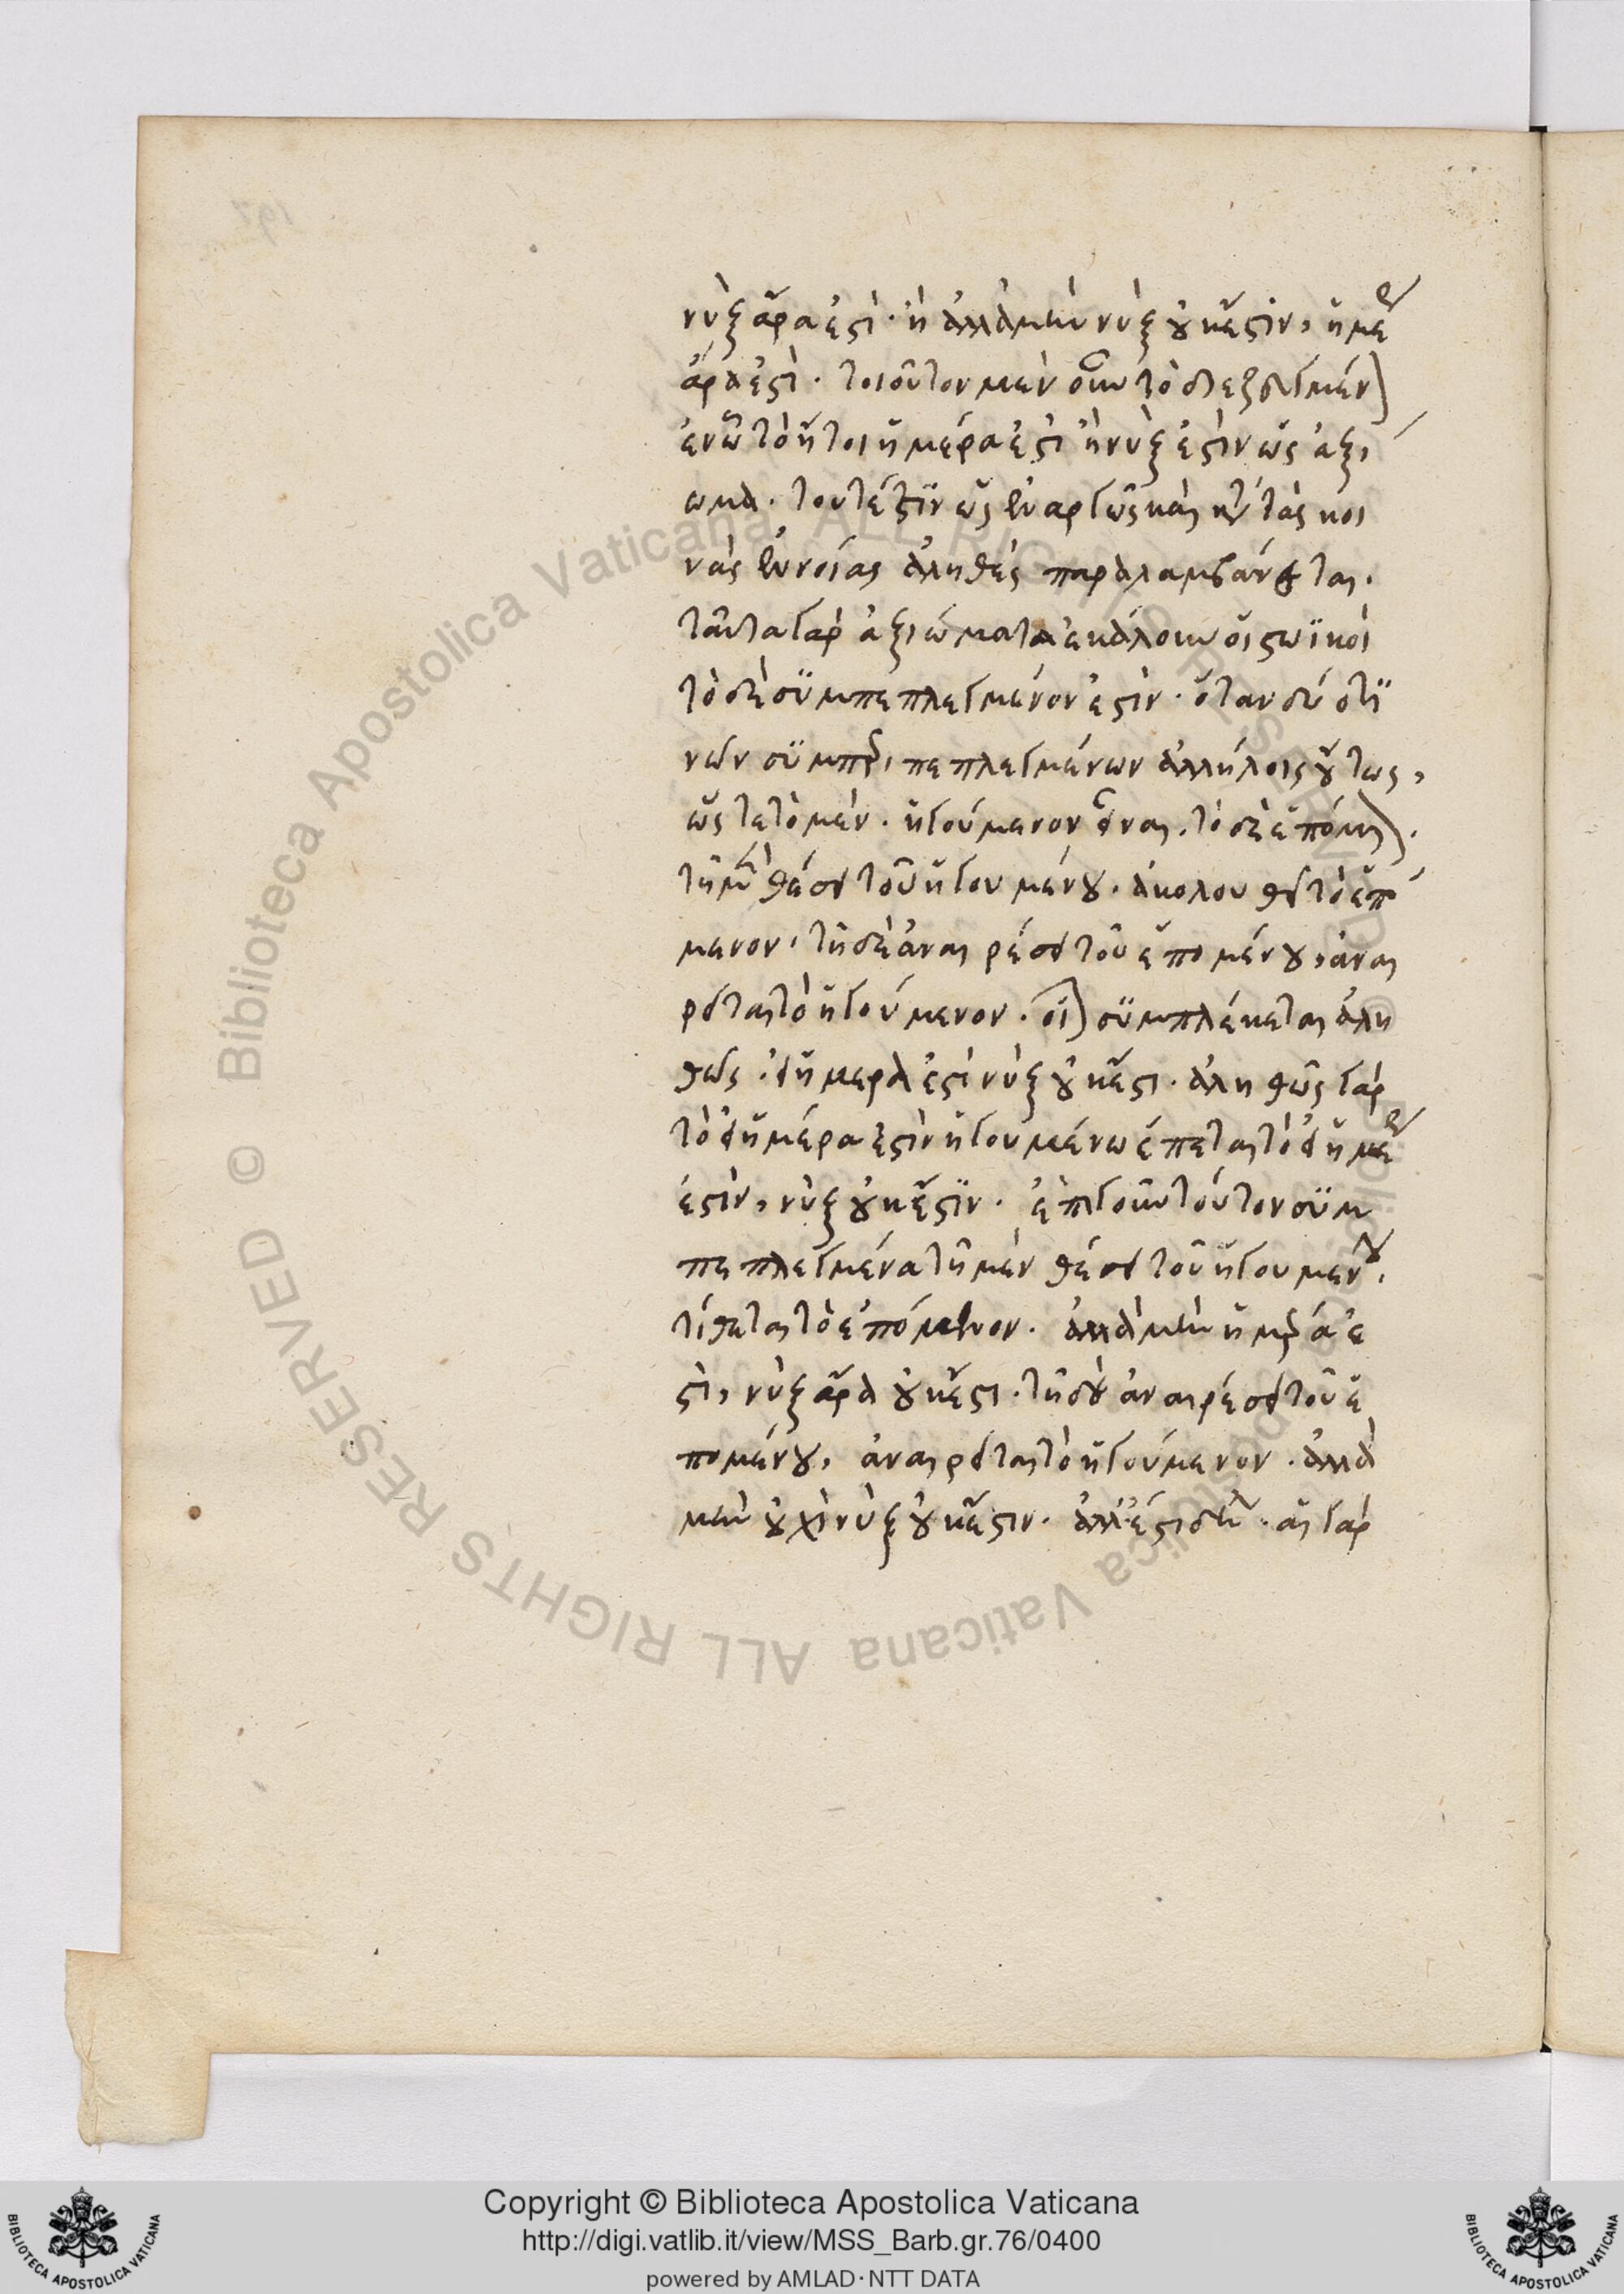 νὺξ ἄρα ἐστί· ἢ ἀλλὰ μὴν νὺξ οὐκ ἔστιν, ἡμέρ
ἄρα ἐστί. τοιοῦτον μὲν οὖν τὸ διεζευγμέν
ἐν ὧ τὸ ἤτοι ἡμέρα ἐστὶ ἢ νύξ ἐστιν ὡς ἀξί
ωμα. τουτέστιν ὡς ἐναργῶς καὶ κατὰ τὰς κοι
νὰς ἐννοίας ἀληθὲς παραλαμβάνεται.
ταῦτα γὰρ ἀξιώματα ἐκάλουν οἱ στωϊκοί
τὸ δὲ συμπεπλεγμένον ἐστίν. ὅταν δύό τι
νῶν πεπλεγμένων ἀλλήλοις οὕτως,
ὥς τε τὸ μὲν. ἡγούμενον εἶναι. τὸ δὲ ἑπόμεν.
τῆ μὲν θέσει τοῦ ἡγουμένου. ἀκολουθεῖ τὸ ἑπό
μενον, τῆ δὲ ἀναιρέσει τοῦ ἑπομένου, ἀναι
ρεῖται τὸ ἡγούμενον. οἷον συμπλέκεται ἀλη
θῶς. εἰ ἡμέρα ἐστὶ νὺξ οὐκ ἔστι. ἀληθῶς γὰρ
τὸ εἰ ἡμέρα ἐστὶν ἡγουμένω ἕπεται τὸ εἰ ἡμέρ
ἐστιν, νὺξ οὐκ ἔστιν. ἐπὶ γοῦν τούτου συμ
πεπλεγμένα τῆ μὲν θέσει τοῦ ἡγουμένου.
τίθεται τὸ ἑπόμενον. ἀλλὰ μὴν ἡμέρα ἐ
στι, νὺξ ἄρα οὐκ ἔστι. τῆ δὲ ἀναιρέσει τοῦ ἑ
πομένου, ἀναιρεῖται τὸ ἡγούμενον. ἀλλὰ
μὴν οὐχὶ νὺξ οὐκ ἔστιν. ἀλλ' ἔστι δὴ. αἱ γὰρ
Copyright © Biblioteca Apostolica Vaticana
http://digi.vatlib.it/view/MSS_Barb.gr.76/0400
powered by AMLAD·NTT DATA